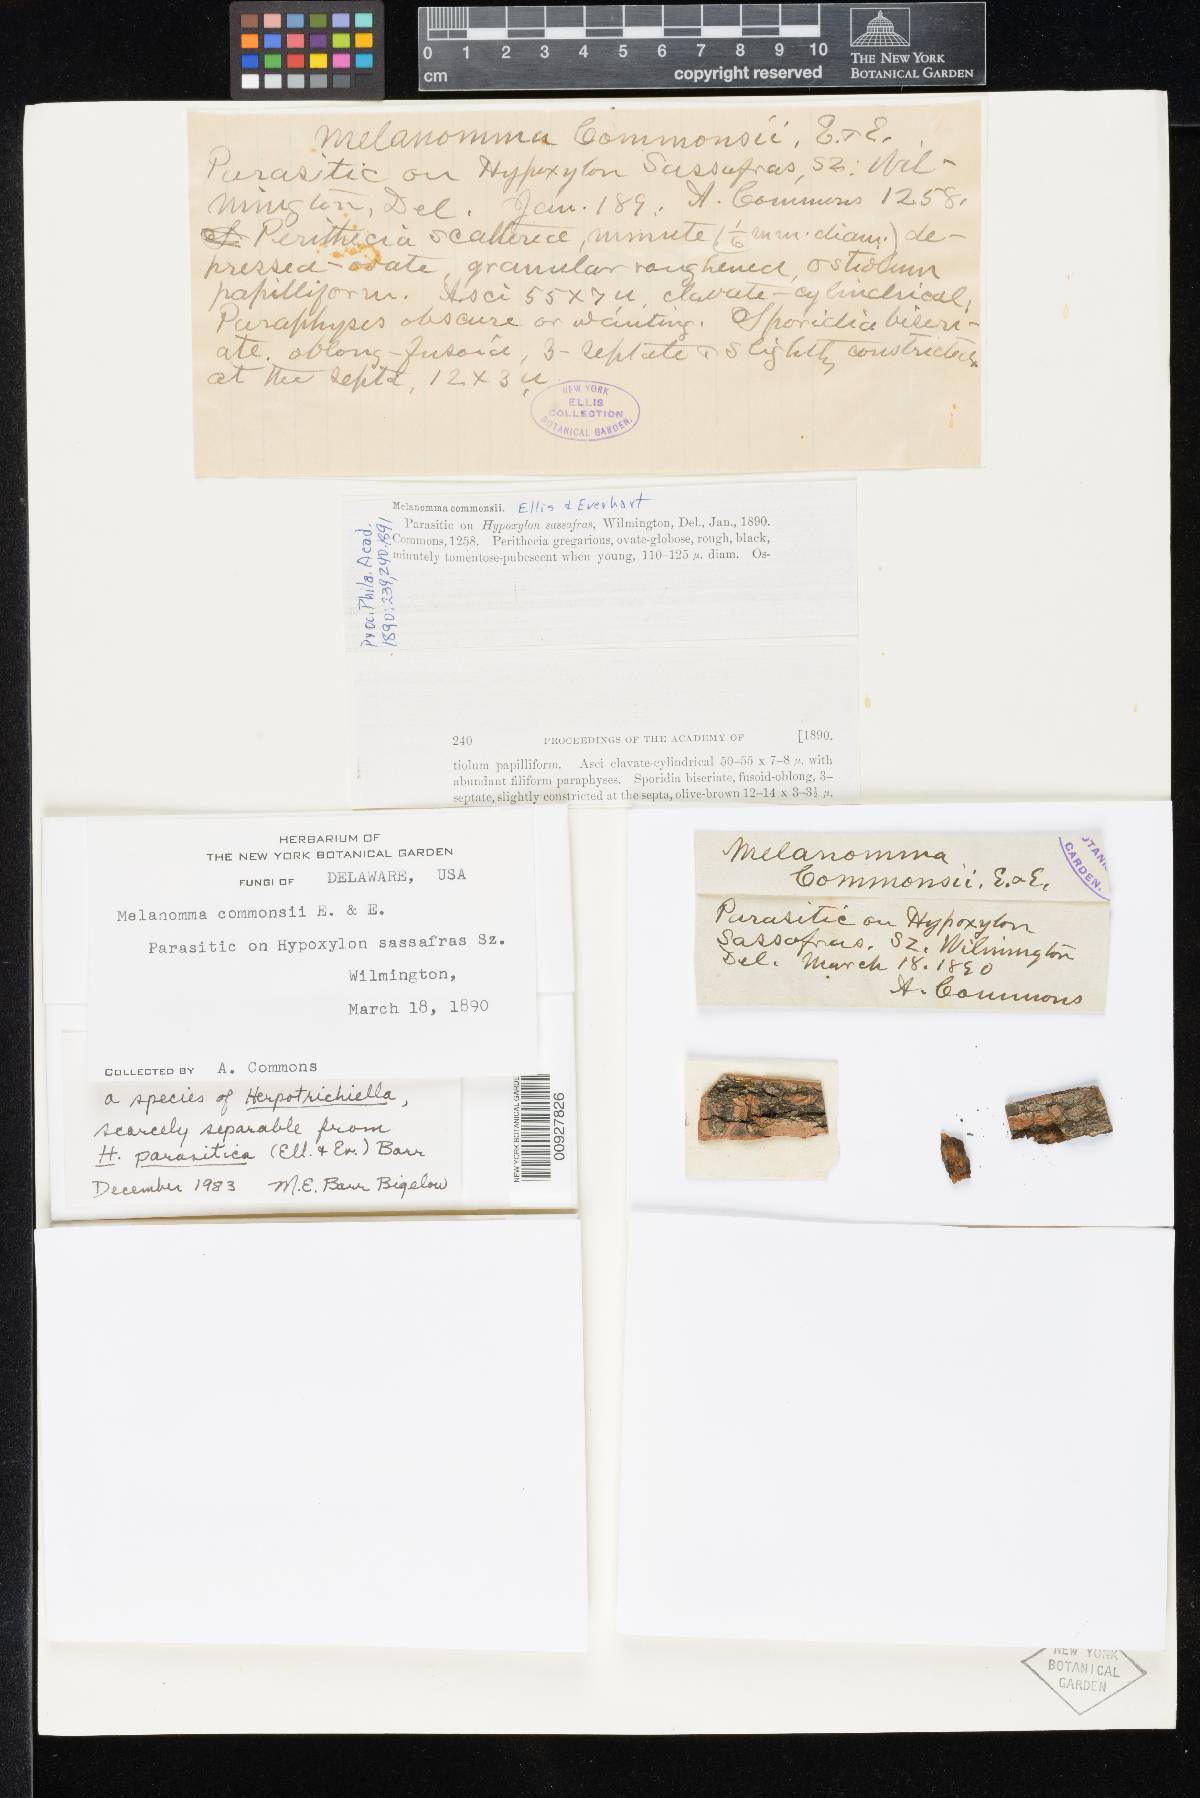 0 1 2 3 4 5 6 7 8 9 10
cm
copyright reserved
THE NEW YORK
BOTANICAL GARDEN
Melanomma Commonsii, E. & E.
Parasitic on Hypoxylon Sassafras, Sz. Wil-
mington, Del. Jan. 189. A. Commons 1258.
Perithecia scattered, minute (1/6 mm. diam.) de-
pressed-ovate, granular roughened, ostiolum
papilliform. Asci 55x7 µ, clavate-cylindrical,
Paraphyses obscure or wanting. Sporidia biseri-
ate, oblong-fusoid, 3-septate & slightly constricted
at the septa, 12 x 3 µ
NEW YORK
ELLIS
COLLECTION
BOTANICAL GARDEN.
Melanomma commonsii. Ellis & Everhart
Parasitic on Hypoxylon sassafras, Wilmington, Del., Jan., 1890.
Commons, 1258. Perithecia gregarious, ovate-globose, rough, black,
minutely tomentose-pubescent when young, 110–125 µ. diam. Os-
Proc. Phila. Acad.
1890:239,240.1891
240 PROCEEDINGS OF THE ACADEMY OF [1890.
tiolum papilliform. Asci clavate-cylindrical 50–55 x 7–8 µ. with
abundant filiform paraphyses. Sporidia biseriate, fusoid-oblong, 3–
septate, slightly constricted at the septa, olive-brown 12–14 x 3–3½ µ.
HERBARIUM OF
THE NEW YORK BOTANICAL GARDEN
FUNGI OF DELAWARE, USA
Melanomma commonsii E. & E.
Parasitic on Hypoxylon sassafras Sz.
Wilmington,
March 18, 1890
COLLECTED BY A. Commons
a species of Herpotrichiella,
scarcely separable from
H. parasitica (Ell. & Ev.) Barr
December 1983 M.E. Barr Bigelow
NEW YORK BOTANICAL GARDEN
00927826
Melanomma
Commonsii, E. & E.
BOTANI
GARDEN.
Parasitic on Hypoxylon
Sassafras. Sz. Wilmington
Del. March 18. 1890
A. Commons
NEW YORK
BOTANICAL
GARDEN